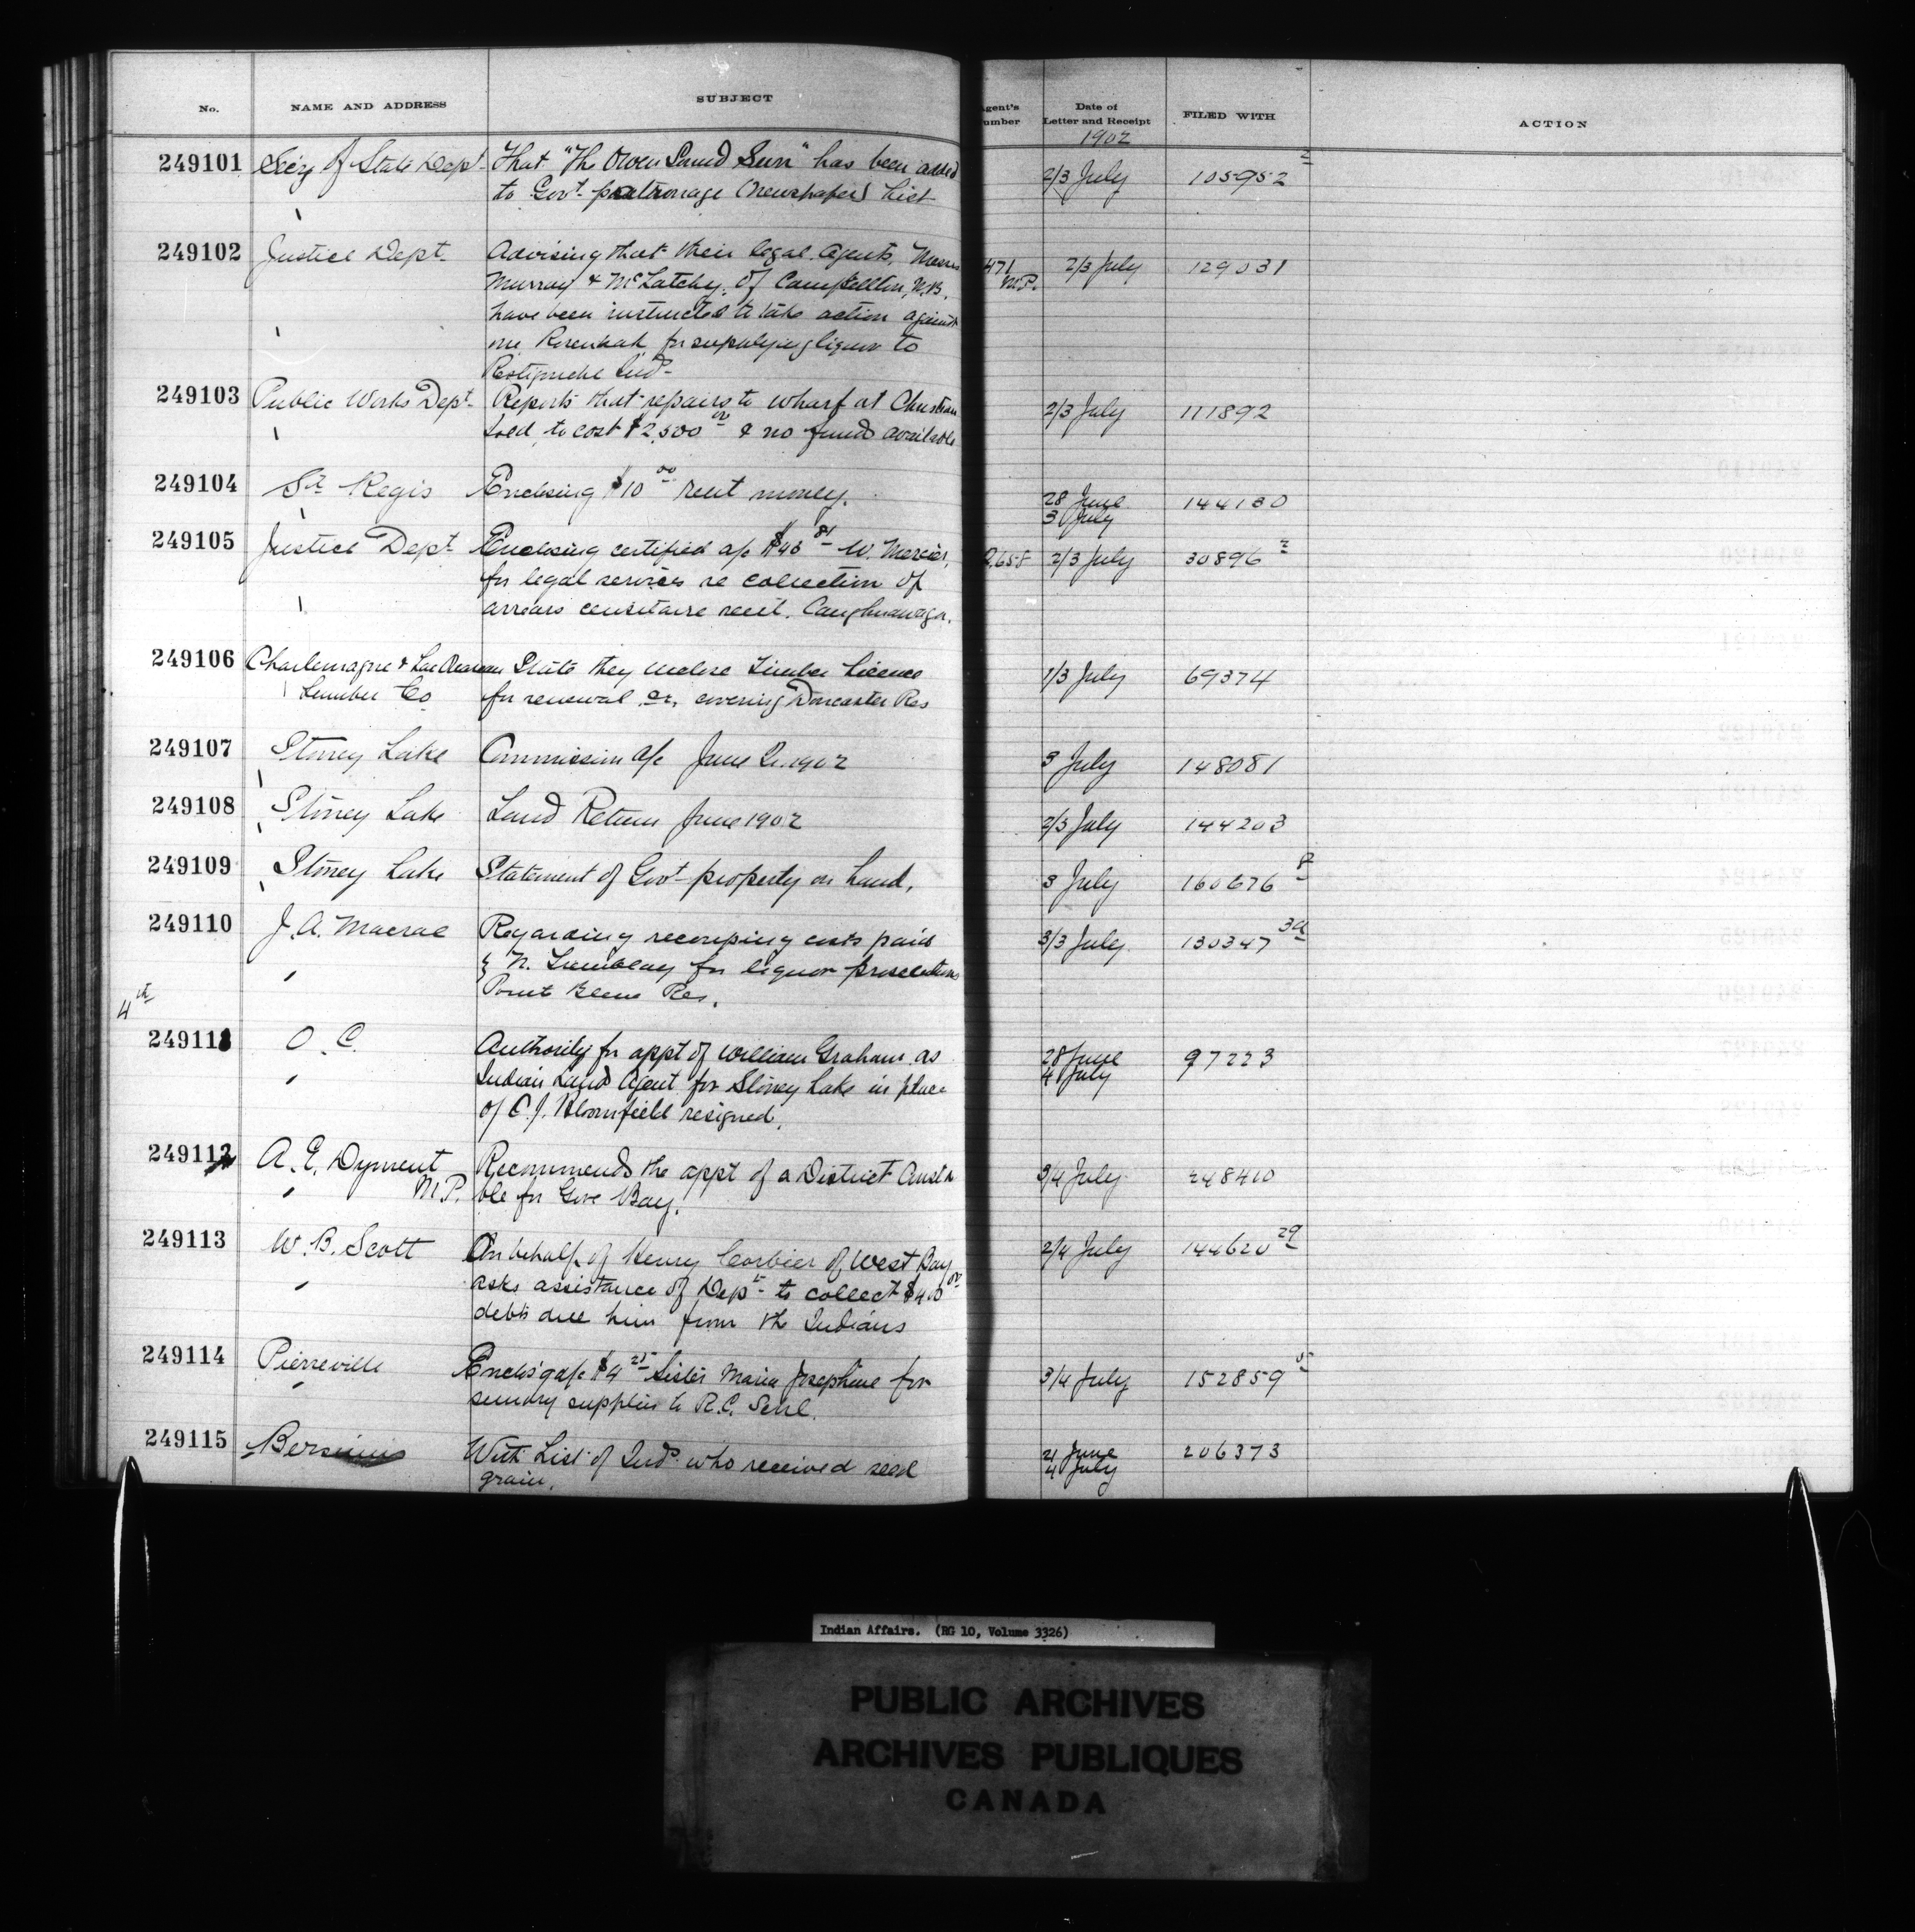 No. NAME AND ADDRESS SUBJECT Agent's Number Date of Letter and Receipt FILED WITH ACTION
1902
249101 Sec'y of State Dept. That "The Owen Sound Sun" has been added 2/3 July 105952 2
to Govt. patronage (newspaper) list
249102 Justice Dept. Advising that their legal Agents, Messrs 471 M.P. 2/3 July 129031
Murray & McLatchy, of Campbellton, N.B.
have been instructed to take action against
one for supplying liquor to
Restigouche Inds
249103 Public Works Dept. Reports that repairs to wharf at Christian 2/3 July 111892
Isld, to cost $2,500 00 & no funds available
249104 St. Regis Enclosing $10 00 rent money. 28 June 144130
3 July
249105 Justice Dept Enclosing certified a/c $43 81 W. Mercier, 2658 2/3 July 30896 2
for legal services re collection of
arrears censitaire rent. Caughnawaga.
249106 Charlemagne & Lac Ouareau State they enclose Timber Licence 1/3 July 69374
Lumber Co for renewal covering Doncaster Res
249107 Stoney Lake Commission a/c June Q. 1902 3 July 148081
249108 Stoney Lake Land Return June 1902 2/3 July 144203
249109 Stoney Lake Statement of Govt property on hand. 3 July 160676 8
249110 J. A. Macrae Regarding recouping costs paid 3/3 July 130347 3a
N. Tremblay for liquor prosecutions
Point Bleue Res.
4th
249111 O. C. Authority for appt of William Graham as 28 June 97223
Indian Land Agent for Stoney Lake in place 4 July
of C. J. Bloomfield resigned.
249112 A. E. Dyment Recommends the appt of a District Consta 3/4 July 248410
M.P. ble for Gore Bay.
249113 W. B. Scott On behalf of Henry Corbier of West Bay 2/4 July 144620 29
asks assistance of Dept. to collect $400 00
debts due him from the Indians
249114 Pierreville Enclos'g a/c $4 25 Sister Maria Josephine for 3/4 July 152859
sundry supplies to R.C. Schl.
249115 Bersimis With List of Inds who received seed 21 June 206373
grain. 4 July
Indian Affairs. (RG 10, Volume 3326)
PUBLIC ARCHIVES
ARCHIVES PUBLIQUES
CANADA